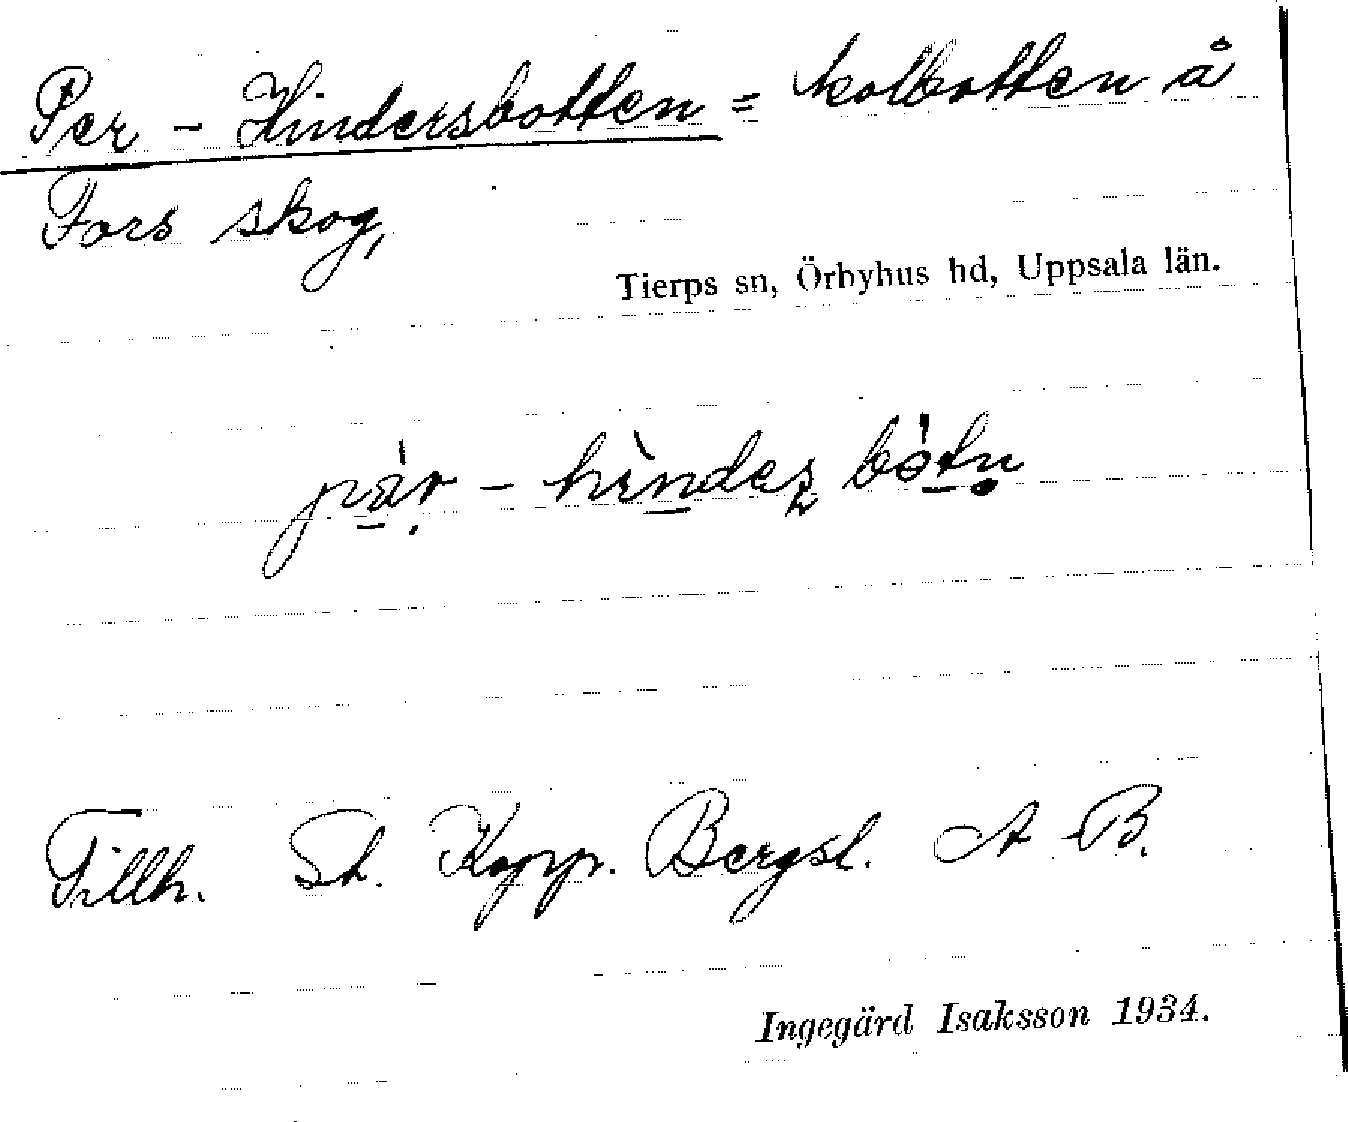 Per - Hindersbotten = kolbotten å
Fors skog,
Tierps sn, Örbyhus hd, Uppsala län.
pä̀r - hìndez bòtn
Tillh. St. Kopp. Bergsl. A B.
Ingegärd Isaksson 1934.